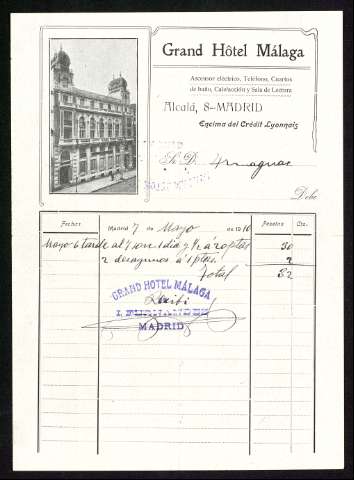 Grand Hôtel Málaga
Ascensor eléctrico, Teléfono, Cuartos
de baño, Calefacción y Sala de Lectura
Alcalá, 8-MADRID
Encima del Crédit Lyonnais
MADRID
Sr. D.
Debe
Fechas Madrid 7 de Mayo de 1910 Pesetas Cts.
Mayo 6 tarde al 7 con 1 dia y a 20 ptas 30
2 desayunos a 1 ptas. 2
Total 32
GRAND HOTEL MÁLAGA
Recibí
FERNANDEZ
MADRID